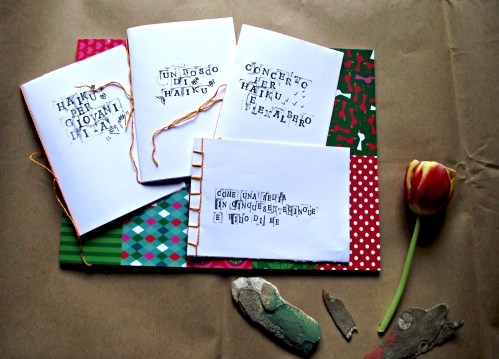 HAIKU
PER
GIOVANI
UN BOSCO
DI
HAIKU
CONCERTO
PER
HAIKU
E
COME UNA SEDIA
IN CINQUESETTECINQUE
E
DI ME